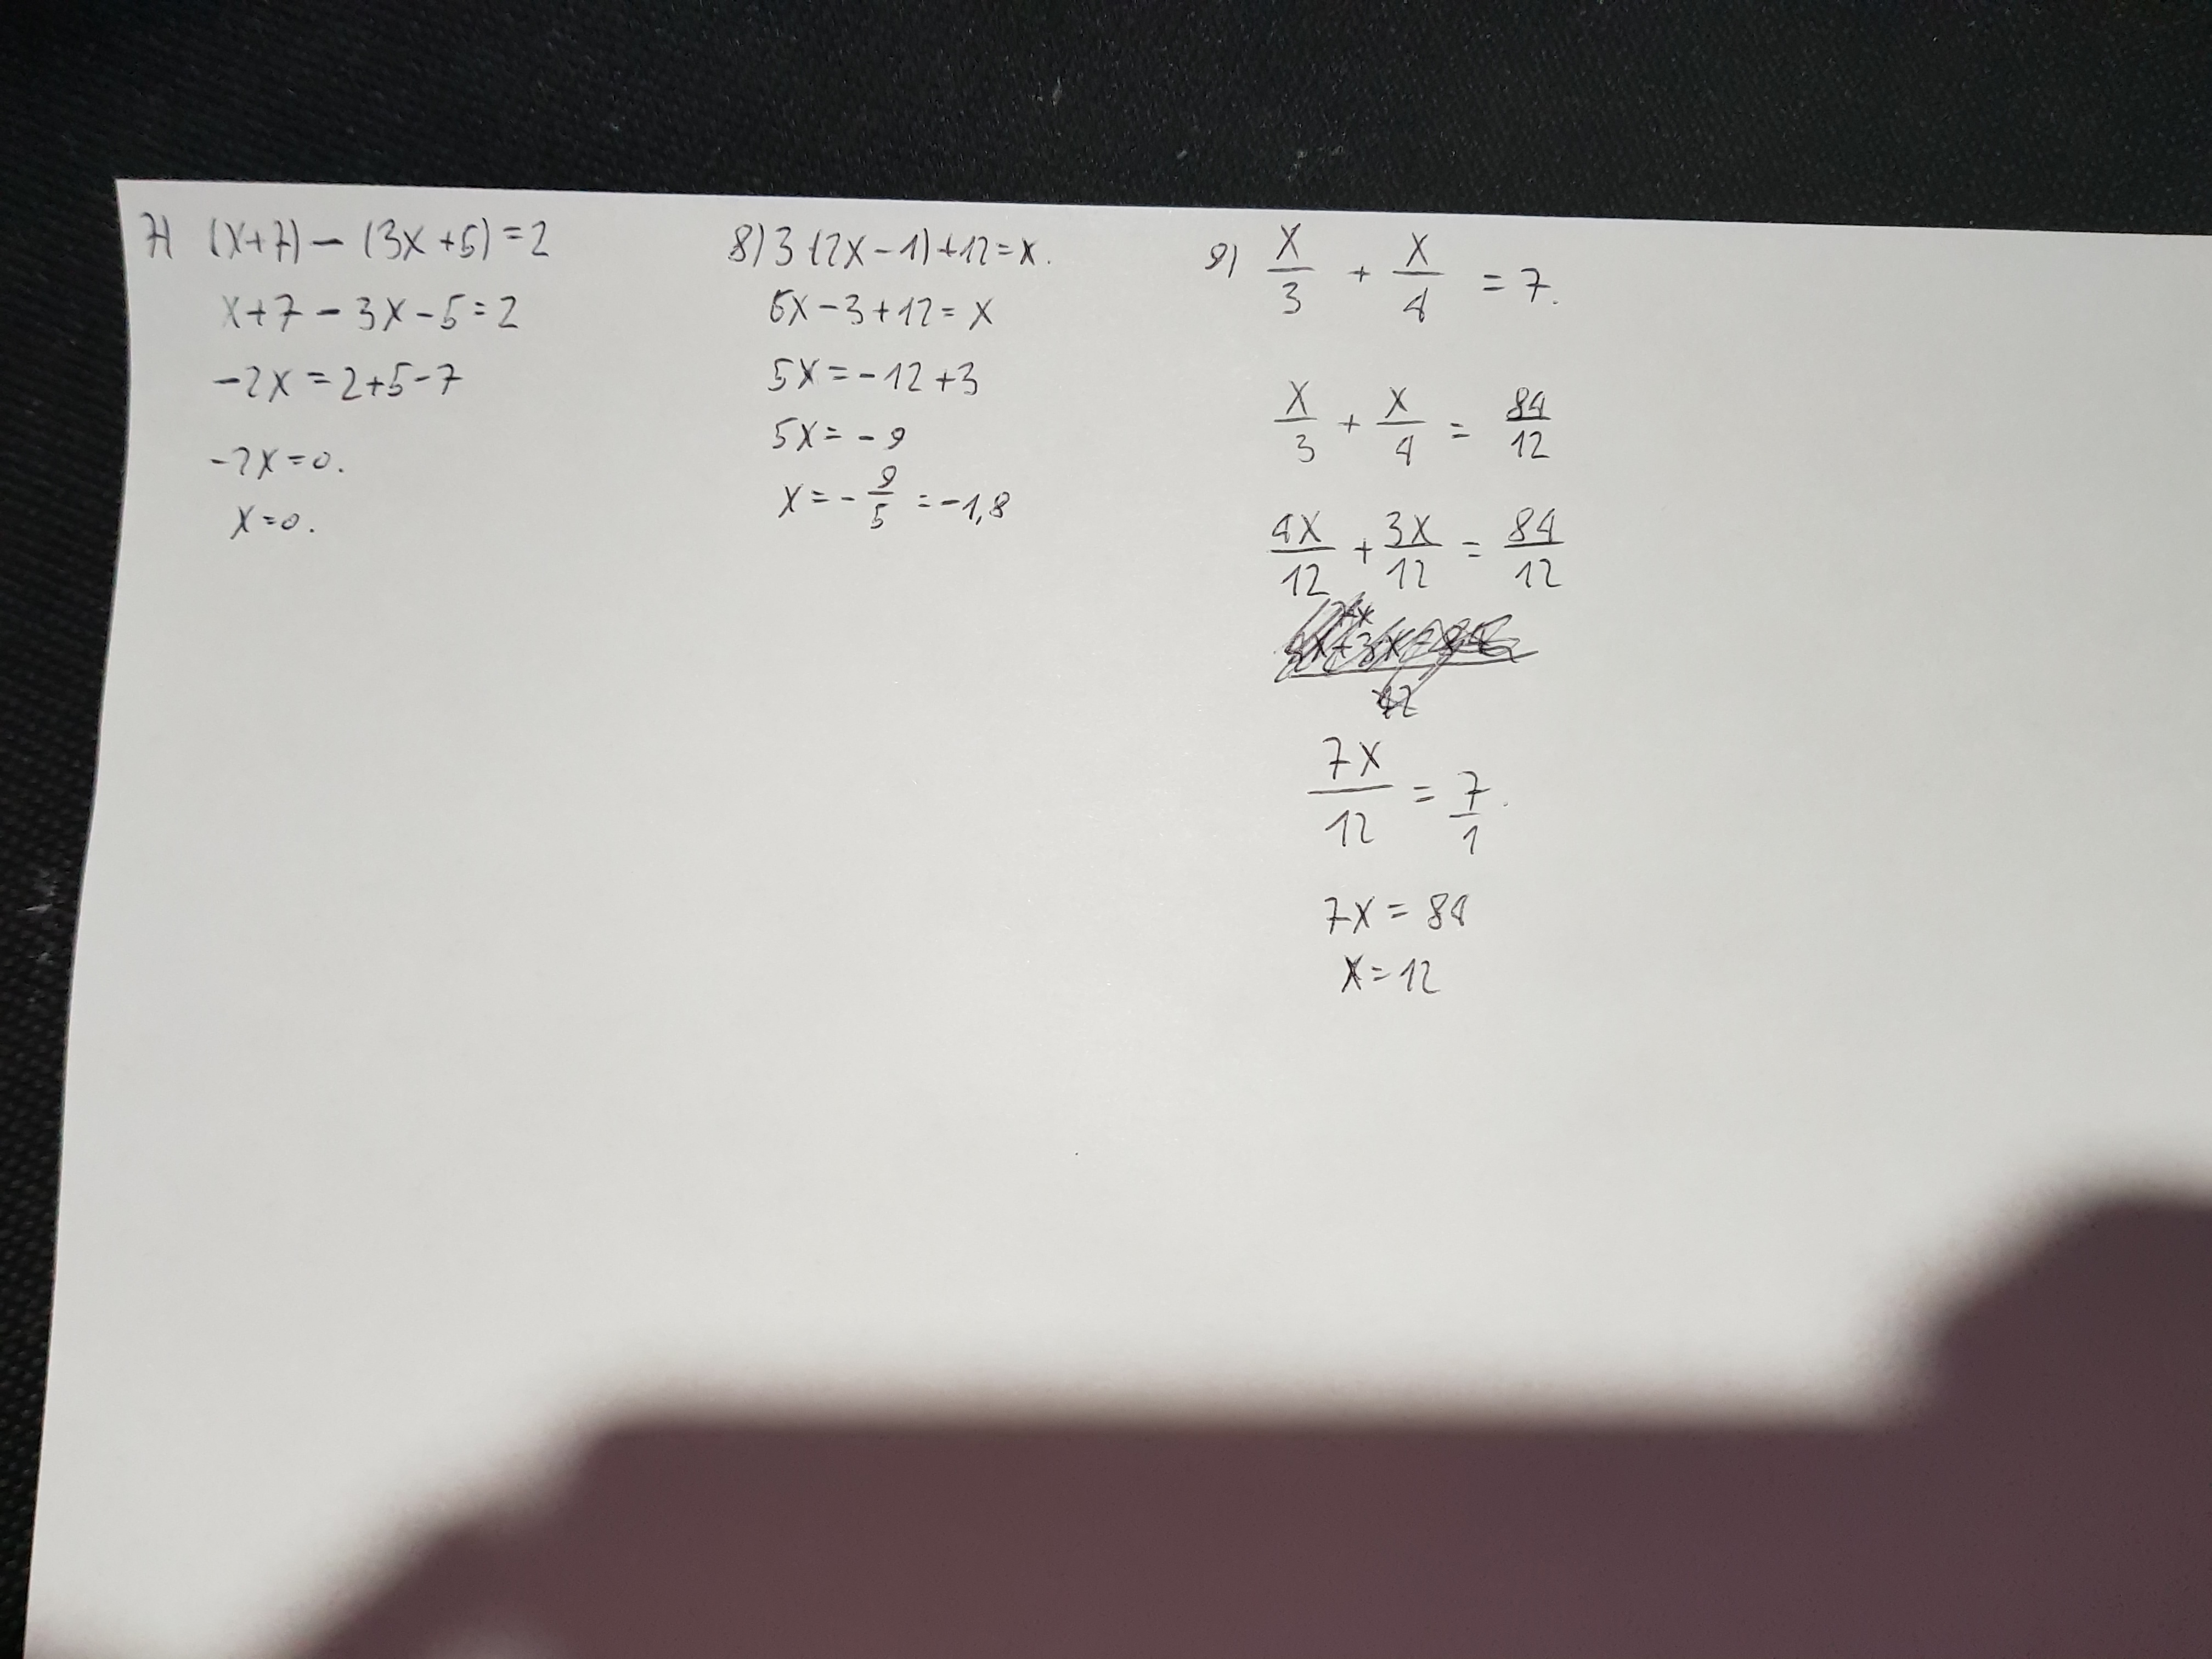 7) (x+7) - (3x+5) = 2
x+7-3x-5=2
-2x = 2+5-7
-2x=0.
x=0.
8) 3·(2x-1)+12=x.
6x-3+12=x
5x=-12+3
5x=-9
x=-9/5=-1,8
9) x/3 + x/4 = 7.
x/3 + x/4 = 84/12
4x/12 + 3x/12 = 84/12
7x/12 = 7/1.
7x=84
x=12